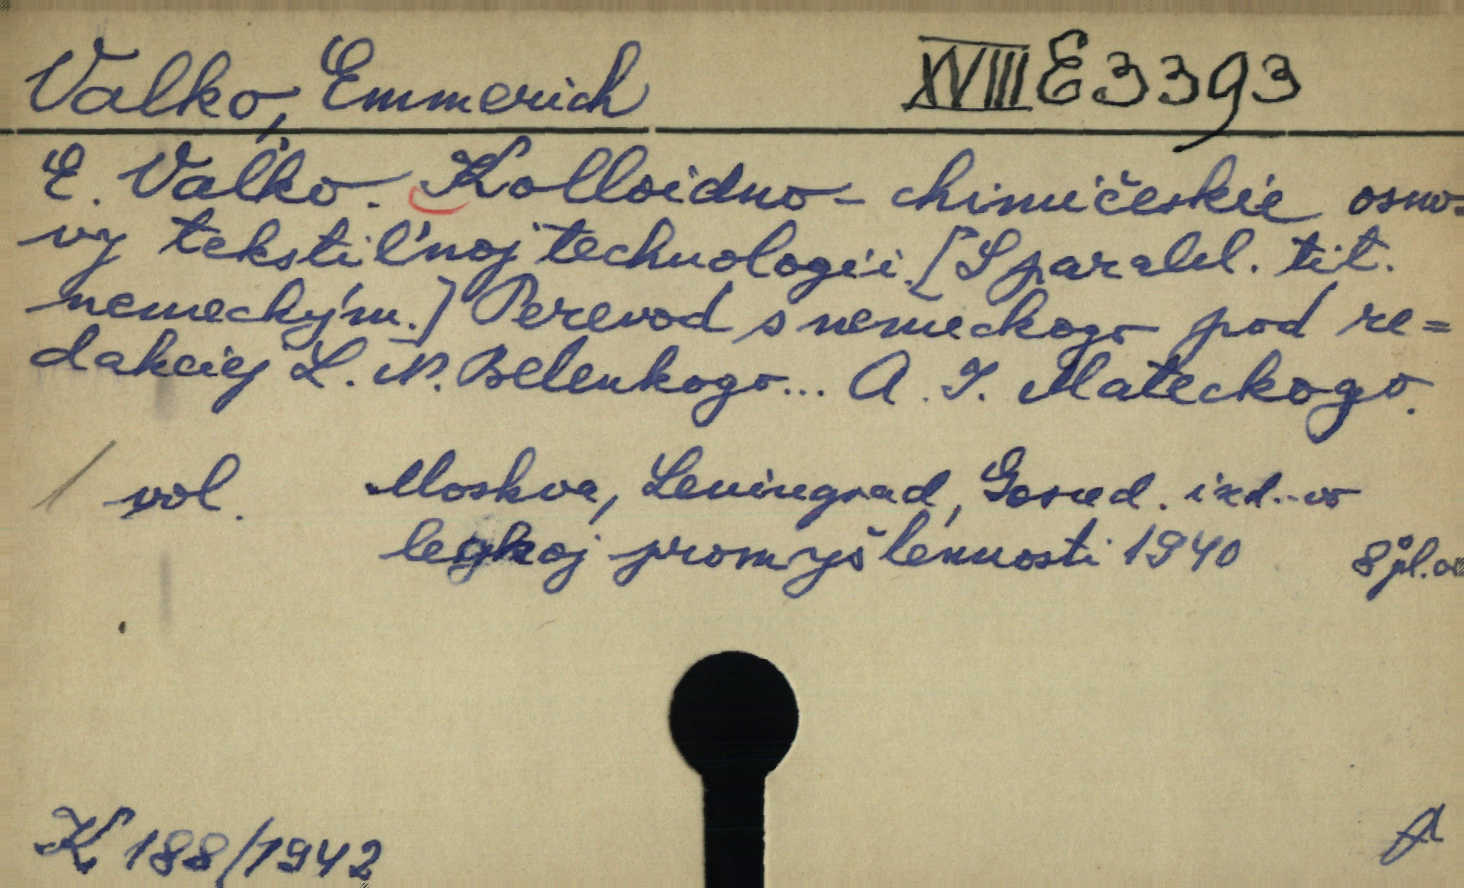 Valko, Emmerich XVIII E 3393
E. Val'ko. Kolloidno-chimičeskie osno-
vy tekstil'noj technologii. [S paralel. tit.
nemeckým.] Perevod s nemeckogo pod re=
dakciej L. N. Belenkogo... A. I. Mateckogo.
vol. Moskva, Leningrad, Gosud. izd.-vo
legkoj promyšlennosti 1940 8° pl.
K 188/1942